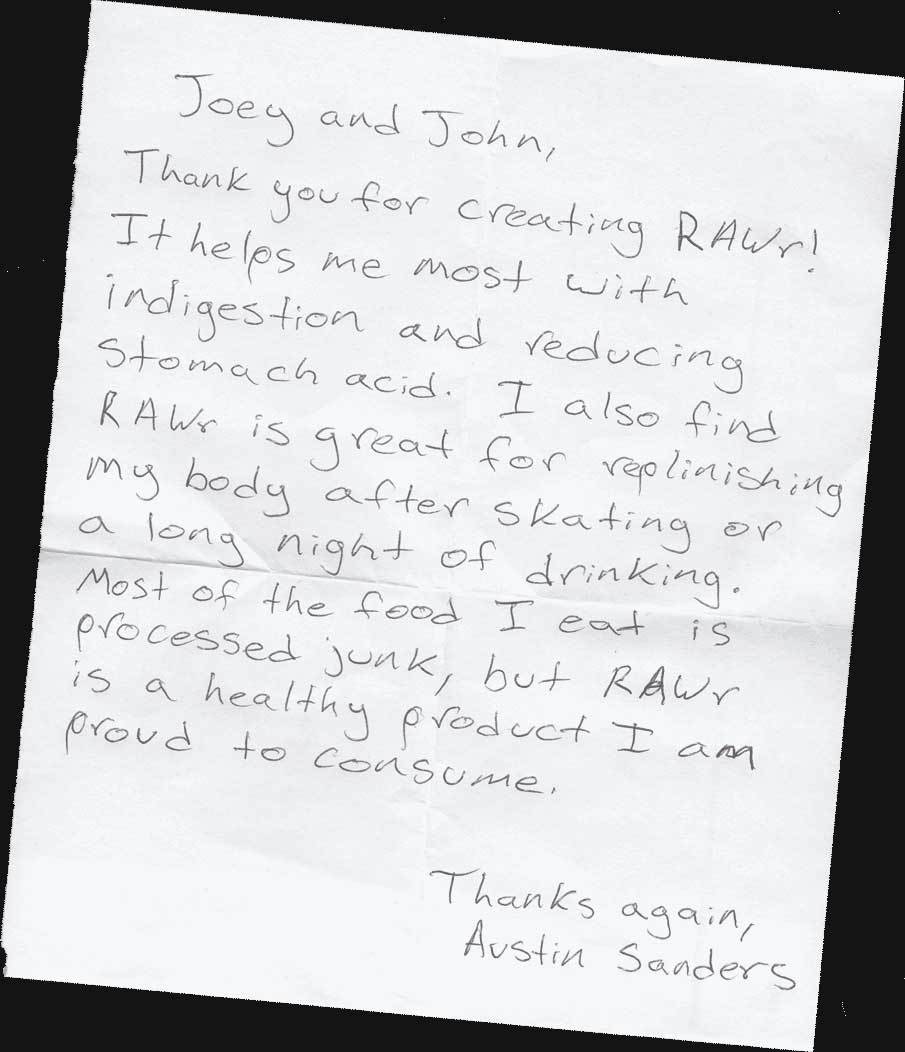 Joey and John,
Thank you for creating RAWr!
It helps me most with
indigestion and reducing
stomach acid. I also find
RAWr is great for replinishing
my body after skating or
a long night of drinking.
Most of the food I eat is
processed junk, but RAWr
is a healthy product I am
proud to consume.
Thanks again,
Austin Sanders